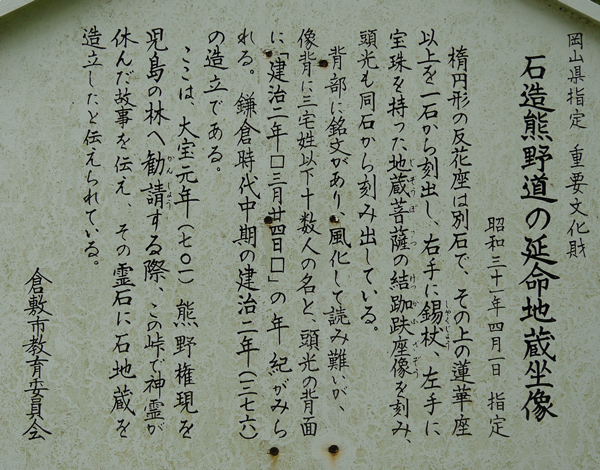 岡山県指定 重要文化財
石造熊野道の延命地蔵坐像
昭和三十一年四月一日 指定
楕円形の反花座は別石で、その上の蓮華座
以上を一石から刻出し、右手に錫杖、左手に
宝珠を持った地蔵菩薩の結跏趺座像を刻み、
頭光も同石から刻み出している。
背部に銘文があり、風化して読み難いが、
像背に三宅姓以下十数人の名と、頭光の背面
に「建治二年□三月廿四日□」の年紀がみら
れる。鎌倉時代中期の建治二年(一二七六)
の造立である。
ここは、大宝元年(七〇一)熊野権現を
児島の林へ勧請する際、この峠で神霊が
休んだ故事を伝え、その霊石に石地蔵を
造立したと伝えられている。
倉敷市教育委員会